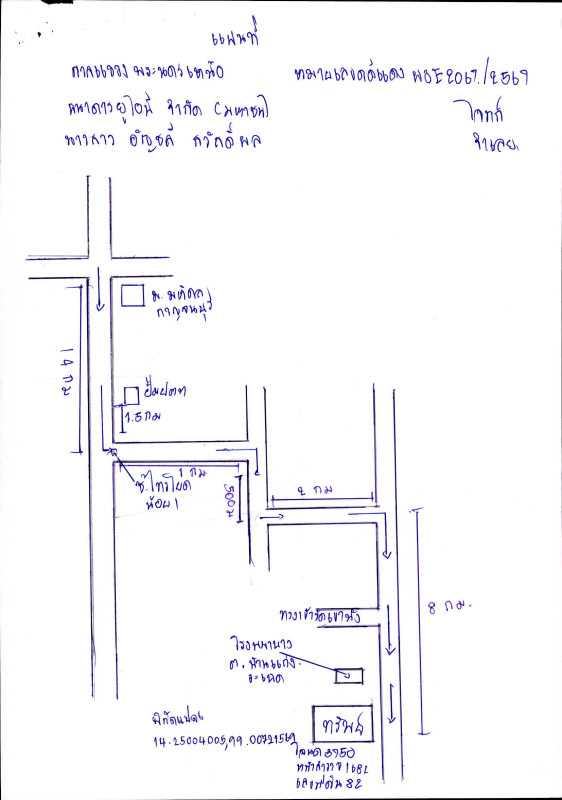 แผนที่
ศาลแขวงพระนครเหนือ หมายเลขคดีแดง ผบE2067/2569
ธนาคารยูโอบี จำกัด (มหาชน) โจทก์
นางสาว อัญชลี สวัสดิ์ผล จำเลย
ม.มหิดล
กาญจนบุรี
14 กม
ปั๊มปตท
1.5 กม
1 กม
ซ.ไทรโยค
น้อย 1
500ม
2 กม
8 กม.
ทางเข้าวัดเขาพัง
โรงพยาบาล
ต.บ้านแก้ง
พิกัดแปลง
14.25004005,99.00721569
ทรัพย์
โฉนด 3950
หน้าสำรวจ 1682
เลขที่ดิน 82